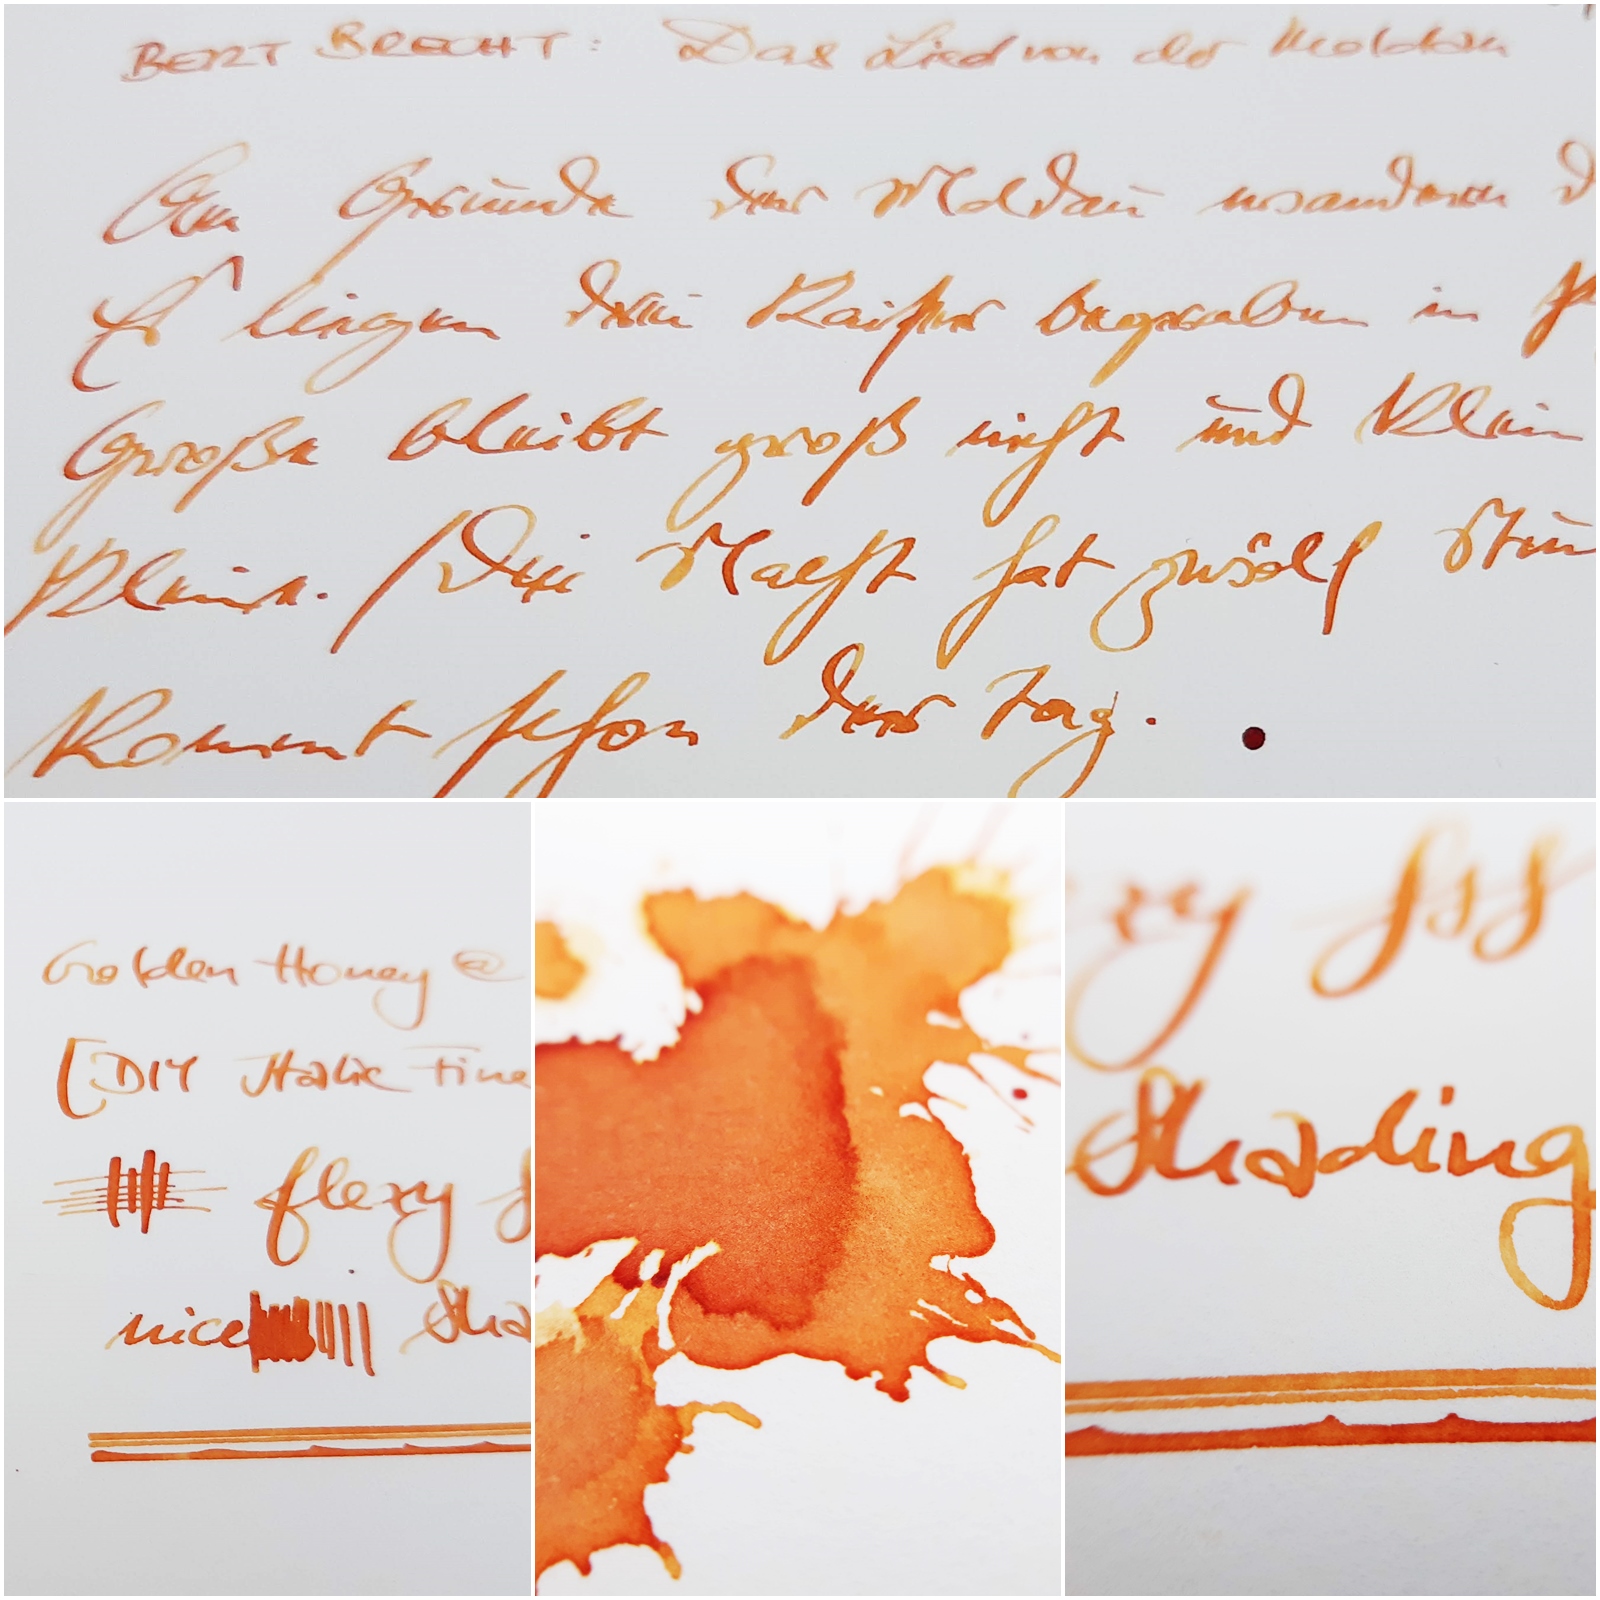 BERT BRECHT: Das Lied von der Moldau
Am Grunde der Moldau wandern d
Es liegen drei Kaiser begraben in P
Große bleibt groß nicht und klein
Kleine. Die Nacht hat zwölf Stun
Kommt schon der Tag.
Golden Honey @
[DIY Italic Fine
flexy f
nice Sha
exy fss
Shading